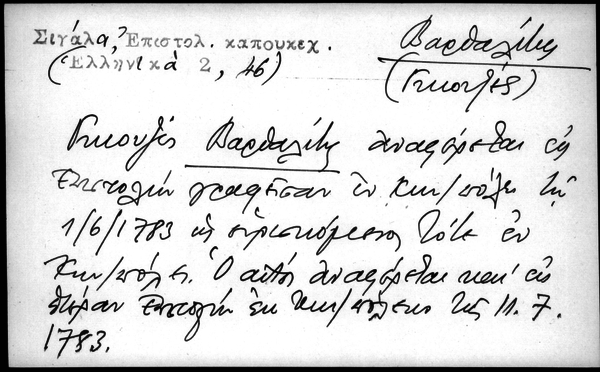 Σιγάλα, Ἐπιστολ. καπουκεχ.
(Ἑλληνικὰ 2, 46)
Βαρθαλίτης
(Γκιουζές)
Γκιουζές Βαρθαλίτης ἀναφέρεται εἰς
ἐπιστολήν γραφεῖσαν ἐν Κων/πόλει τῇ
1/6/1783 ὡς εὑρισκόμενος τότε ἐν
Κων/πόλει. Ὁ αὐτός ἀναφέρεται καί εἰς
ἑτέραν ἐπιστολήν ἐκ Κων/πόλεως τῆς 11.7.
1783.